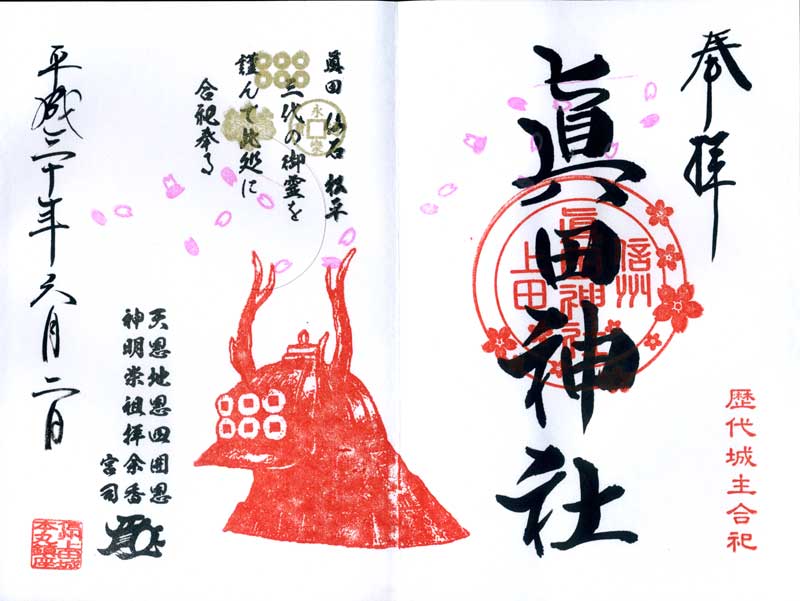 奉拝
眞田神社
信州
眞田神社
上田
歴代城主合祀
眞田 仙石 松平
三代の御霊を
謹んで此処に
合祀奉る
永楽
天恩地恩四囲恩
神明崇祖拝余香
宮司
平成三十年六月二日